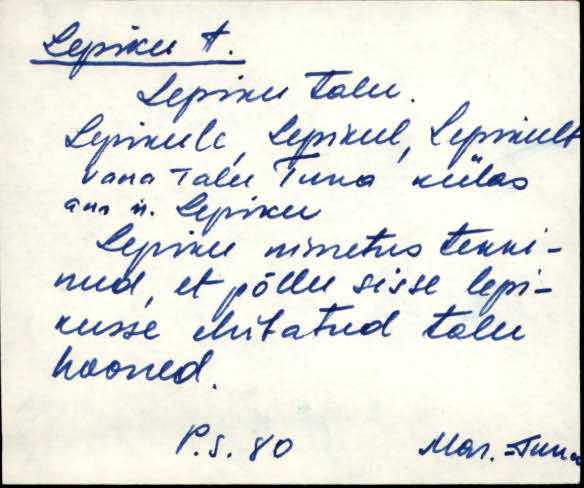 Lepiku t.
Lepiku talu.
Lepikule, Lepikul, Lepikult
vana talu Tuna külas
ans n. Lepiku
Lepiku nimetus tekki-
nud, et põllu sisse lepi-
kusse ehitatud talu
hooned.
P.S. 80
Mar.-Tuna